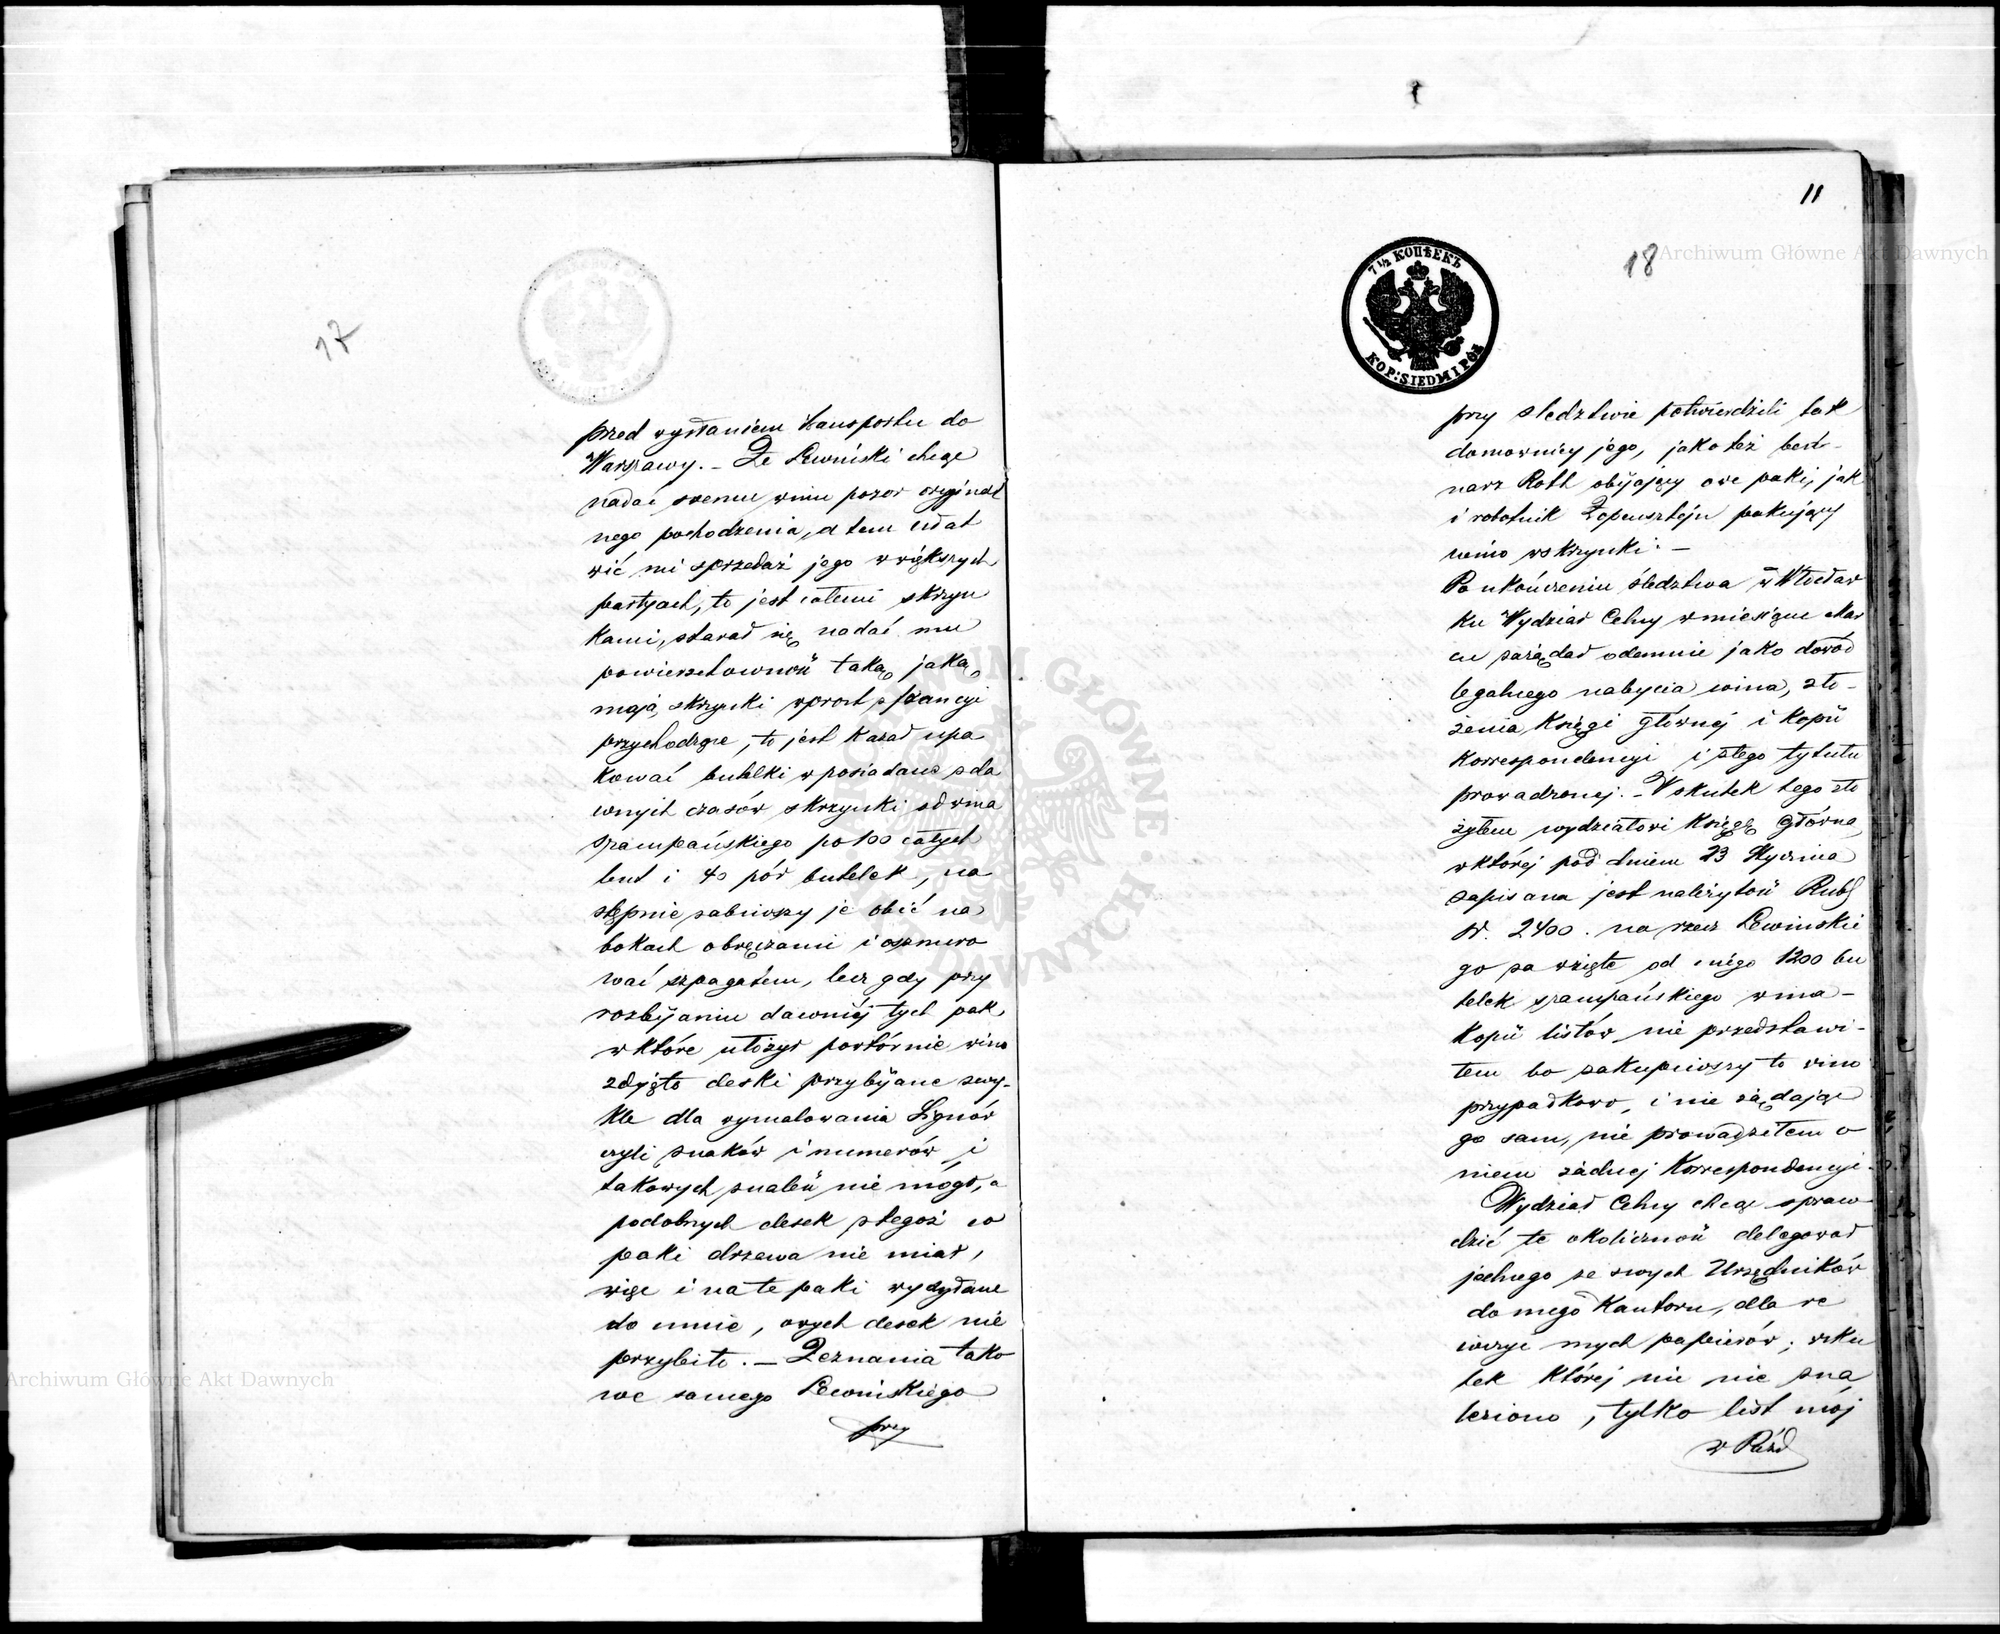 17
przed wysłaniem transportu do
Warszawy. – Że Lewiński chcąc
nadać swemu winu pozor orginal
nego pochodzenia, a tem ułat
wić mi sprzedaż jego w większych
partyach, to jest całemi skrzyn
kami, starał się nadać mu
powierzchowność taką, jaką
mają skrzynki wprost z francyi
przychodzące, to jest kazał upa
kować butelki w posiadane z da
wnych czasów skrzynki od wina
szampańskiego po 100 całych
but i 40 pół butelek, na
stępnie zabiwszy je obić na
bokach obręczami i osznuro
wać szpagatem, lecz gdy przy
rozbijaniu dawniéj tych pak,
w które ułożył powtórnie wino
zdjęto deski przybijane zwy-
kle dla wymalowania Signów
czyli znaków i numerów i
takowych znaleść nie mógł, a
podobnych desek z tegoż co
paki drzewa nie miał,
więc i na te paki wysyłane
do mnie, owych desek nie
przybito. – Zeznania tako
we samego Lewińskiego
przy
11
18
7½ КОПѢЕКЪ
KOP: SIEDM I PÓŁ
przy śledztwie potwierdzili tak
domownicy jego, jako też bed-
narz Roth obijający owe paki, jak
i robotnik Zopensztejn pakujący
wino w skrzynki. –
Po ukończeniu śledztwa w Włocław
ku Wydział Celny w miesiącu Mar
cu zażądał odemnie jako dowód
legalnego nabycia wina, zło-
żenia Księgi głównej i Kopii
Korrespondencyi i z tego tytułu
prowadzonej. – W skutek tego zło
żyłem wydziałowi Księgę Główną
w której pod dniem 23 Stycznia
zapisana jest należytość Rubl
sr. 2400. na rzecz Lewińskie
go za wzięte od niego 1200 bu
telek szampańskiego wina –
Kopii listów nie przedstawi-
łem bo zakupiwszy to wino
przypadkowo, i nie żądając
go sam, nie prowadziłem o
niem żadnej Korrespondencyi.
Wydział Celny chcąc spraw
dzić te okoliczność delegował
jednego ze swych Urzędników
do mego Kantoru, dla re
wizyi mych papierów; wsku
tek której nic nie zna
leziono, tylko list mój
w Paźd
Archiwum Główne Akt Dawnych
Archiwum Główne Akt Dawnych
ARCHIWUM GŁÓWNE AKT DAWNYCH